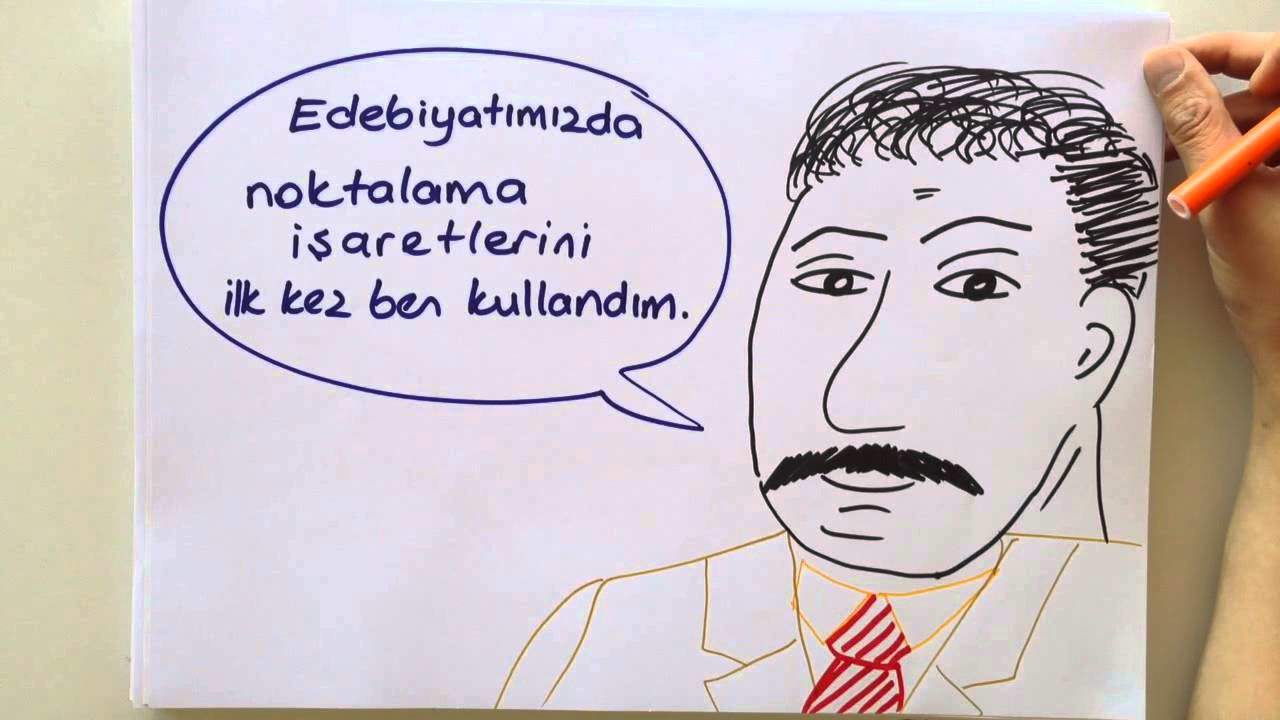 Edebiyatımızda
noktalama
işaretlerini
ilk kez ben kullandım.